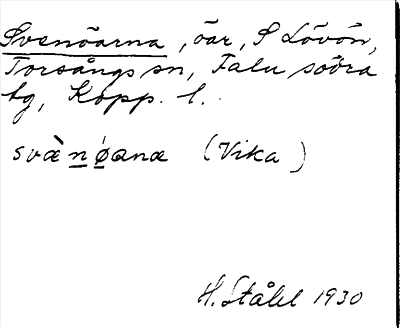 Svenöarna, öar, S Lövön,
Torsångs sn, Falu södra
tg, Kopp. l.
svæ̀nøana (Vika)
H. Ståhl 1930